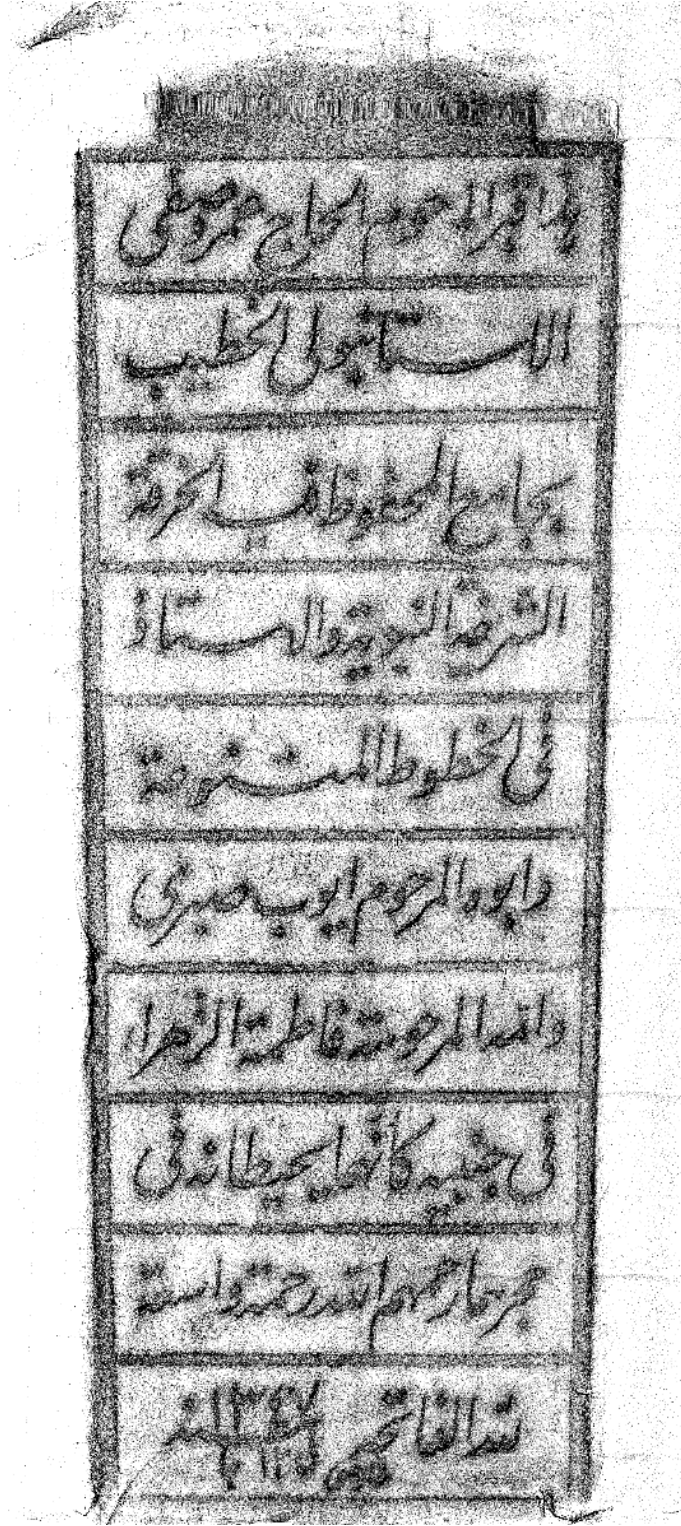 هذا قبر المرحوم الحاج عمر وصفى
الاستانبولى الخطيب
بجامع المحفوظ فيه الخرقة
الشريفة النبوية والاستاذ
فى الخطوط المتنوعة
وابوه المرحوم ايوب صبرى
وامه المرحومة فاطمة الزهراء
فى جنبيه كأنهما يحيطانه فى
حجرهما رحمهم الله رحمة واسعة
لله الفاتحة سنة ١٣٤٧